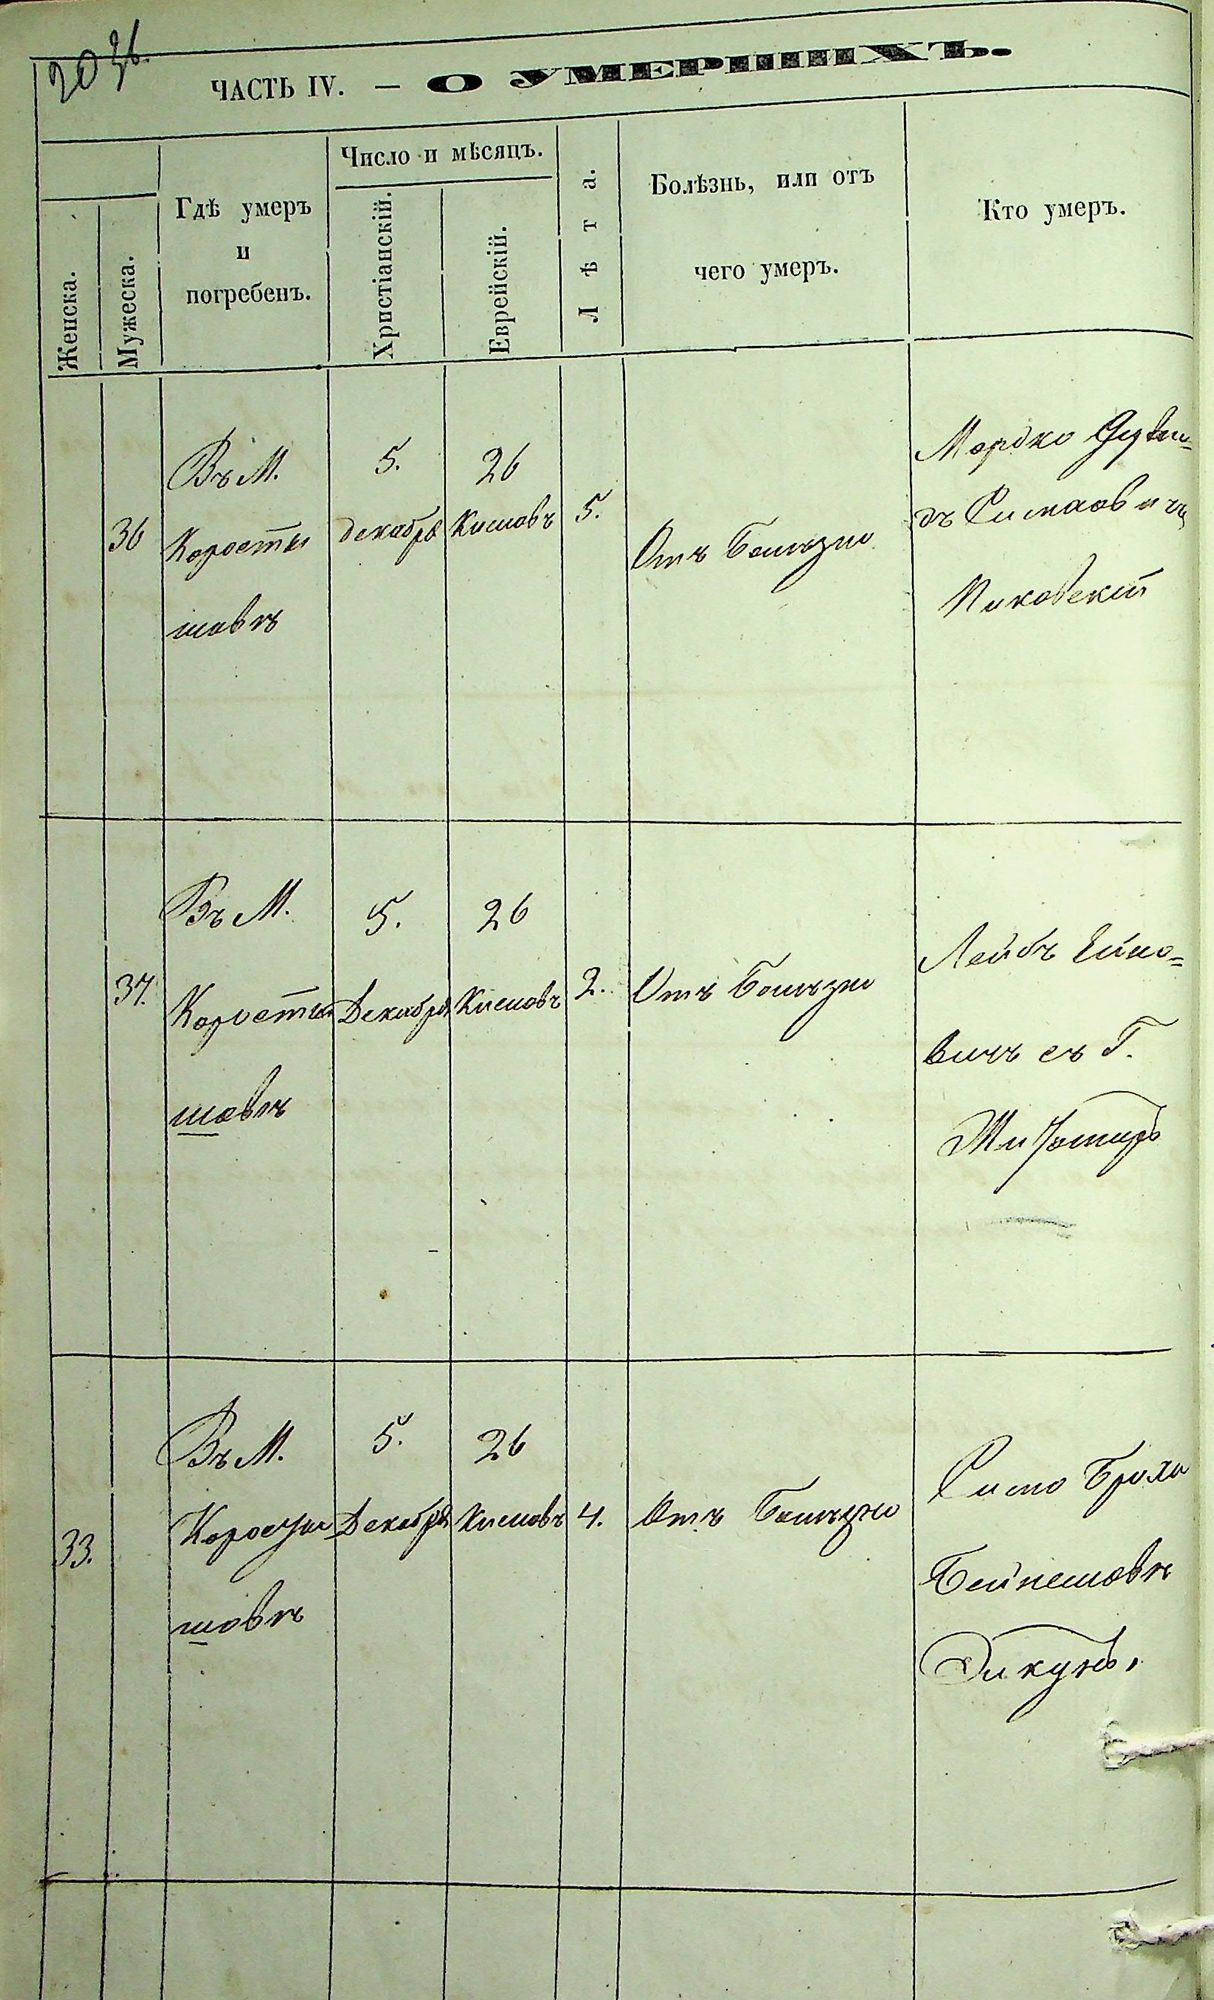 203об.
ЧАСТЬ IV. — О УМЕРШИХЪ.
Женска.
Мужеска.
Гдѣ умеръ
и
погребенъ.
Число и мѣсяцъ.
Христіанскій.
Еврейскій.
Лѣта.
Болѣзнь, или отъ
чего умеръ.
Кто умеръ.
36
Въ М.
Коросты
шовѣ
5.
декабря
26
Кислова
5.
Отъ болѣзни
Мордко Дуви=
дъ Симховичъ
Пиковскій
37.
Въ М.
Коросты
шовѣ
5.
Декабря
26
Кислова
2.
Отъ болѣзни
Лейбъ
вичъ съ Г.
Житомира
33.
Въ М.
Коросты
шовѣ
5.
Декабря
26
Кислова
4.
Отъ болѣзни
Сима Броха
Бейнешовна